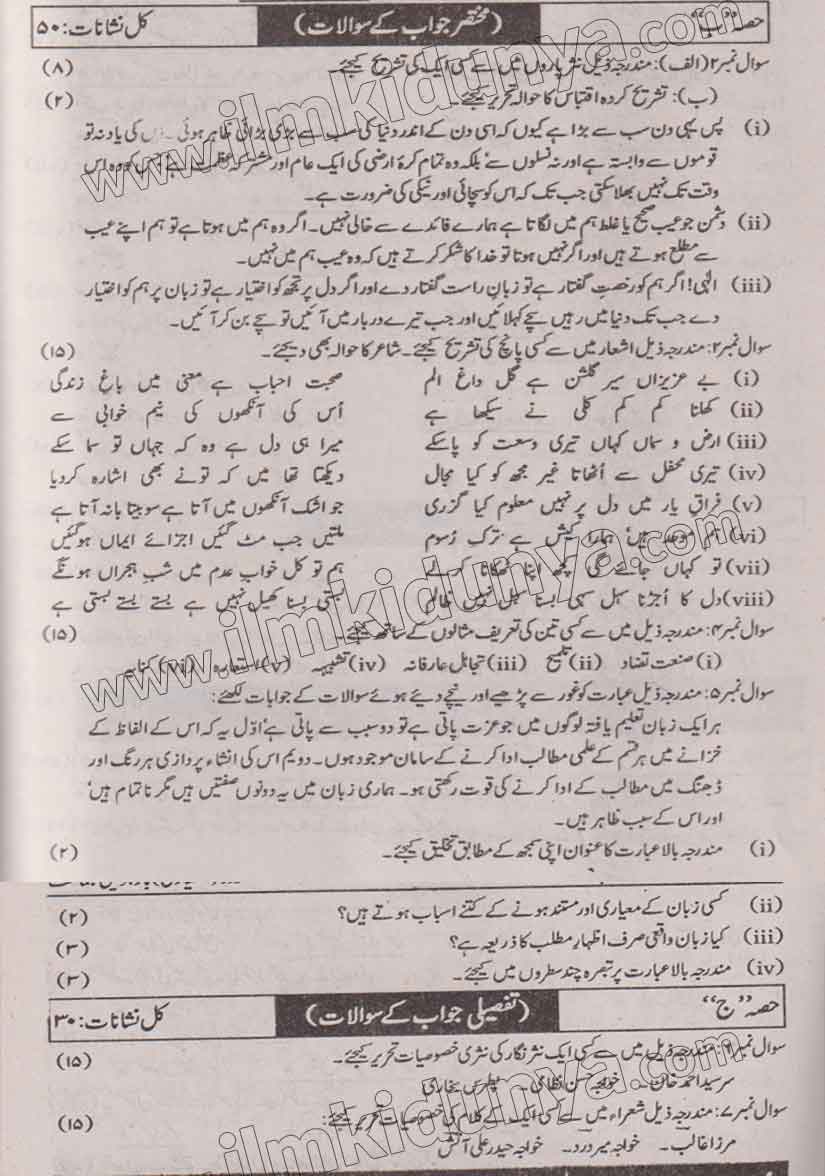 حصہ ”ب“ (مختصر جواب کے سوالات) کل نشانات: ۵۰
سوال نمبر۲ (الف): مندرجہ ذیل نثر پاروں میں سے کسی ایک کی تشریح کیجئے۔ (۸)
(ب): تشریح کردہ اقتباس کا حوالہ تحریر کیجئے۔ (۲)
(i) پس یہی دن سب سے بڑا ہے کیوں کہ اسی دن کے اندر دنیا کی سب سے بڑی بڑائی ظاہر ہوئی۔ اس کی یاد نہ تو
قوموں سے وابستہ ہے اور نہ نسلوں سے بلکہ وہ تمام کرۂ ارضی کی ایک عام اور مشترکہ عظمت ہے جس کو وہ اس
وقت تک نہیں بھلا سکتی جب تک کہ اس کو سچائی اور نیکی کی ضرورت ہے۔
(ii) دشمن جو عیب صحیح یا غلط ہم میں لگاتا ہے ہمارے فائدے سے خالی نہیں۔ اگر وہ ہم میں ہوتا ہے تو ہم اپنے عیب
سے مطلع ہوتے ہیں اور اگر نہیں ہوتا تو خدا کا شکر کرتے ہیں کہ وہ عیب ہم میں نہیں۔
(iii) الٰہی! اگر ہم کو رخصتِ گفتار ہے تو زبانِ راست گفتار دے اور اگر دل پر تجھ کو اختیار ہے تو زبان پر ہم کو اختیار
دے جب تک دنیا میں رہیں سچے کہلائیں اور جب تیرے دربار میں آئیں تو سچے بن کر آئیں۔
سوال نمبر۲: مندرجہ ذیل اشعار میں سے کسی پانچ کی تشریح کیجئے۔ شاعر کا حوالہ بھی دیجئے۔ (۱۵)
(i) بے عزیزاں سیر گلشن ہے گل داغ الم صحبت احباب ہے معنی میں باغ زندگی
(ii) کھلنا کم کم کلی نے سیکھا ہے اُس کی آنکھوں کی نیم خوابی سے
(iii) ارض و سماں کہاں تیری وسعت کو پا سکے میرا ہی دل ہے وہ کہ جہاں تو سما سکے
(iv) تیری محفل سے اُٹھاتا غیر مجھ کو کیا مجال دیکھتا تھا میں کہ تو نے بھی اشارہ کردیا
(v) فراقِ یار میں دل پر نہیں معلوم کیا گزری جو اشک آنکھوں میں آتا ہے سو بیتابانہ آتا ہے
(vi) ہم موحد ہیں ہمارا کیش ہے ترکِ رُسوم ملتیں جب مٹ گئیں اجزائے ایماں ہوگئیں
(vii) تو کہاں جائے گی کچھ اپنا ٹھکانا کرلے ہم تو کل خوابِ عدم میں شبِ ہجراں ہونگے
(viii) دل کا اُجڑنا سہل سہی بسنا سہل نہیں ظالم بستی بسنا کھیل نہیں ہے بستے بستے بستی ہے
سوال نمبر۴: مندرجہ ذیل میں سے کسی تین کی تعریف مثالوں کے ساتھ لکھئے۔ (۱۵)
(i) صنعت تضاد (ii) تلمیح (iii) تجاہل عارفانہ (iv) تشبیہہ (v) استعارہ (vi) کنایہ
سوال نمبر۵: مندرجہ ذیل عبارت کو غور سے پڑھیے اور نیچے دیئے ہوئے سوالات کے جوابات لکھئے:
ہر ایک زبان تعلیم یافتہ لوگوں میں جو عزت پاتی ہے تو دو سبب سے پاتی ہے، اوّل یہ کہ اس کے الفاظ کے
خزانے میں ہر قسم کے علمی مطالب ادا کرنے کے سامان موجود ہوں۔ دویم اس کی انشاء پردازی ہر رنگ اور
ڈھنگ میں مطالب کے ادا کرنے کی قوت رکھتی ہو۔ ہماری زبان میں یہ دونوں صفتیں ہیں مگر ناتمام ہیں،
اور اس کے سبب ظاہر ہیں۔
(i) مندرجہ بالا عبارت کا عنوان اپنی سمجھ کے مطابق تخلیق کیجئے۔ (۲)
(ii) کسی زبان کے معیاری اور مستند ہونے کے کتنے اسباب ہوتے ہیں؟ (۲)
(iii) کیا زبان واقعی صرف اظہارِ مطلب کا ذریعہ ہے؟ (۳)
(iv) مندرجہ بالا عبارت پر تبصرہ چند سطروں میں کیجئے۔ (۳)
حصہ ”ج“ (تفصیلی جواب کے سوالات) کل نشانات: ۳۰
سوال نمبر۶: مندرجہ ذیل میں سے کسی ایک نثر نگار کی نثری خصوصیات تحریر کیجئے۔ (۱۵)
سرسید احمد خان۔ خواجہ حسن نظامی۔ پطرس بخاری
سوال نمبر۷: مندرجہ ذیل شعراء میں سے کسی ایک کے کلام کی خصوصیات تحریر کیجئے: (۱۵)
مرزا غالب۔ خواجہ میر درد۔ خواجہ حیدر علی آتش
www.ilmkidunya.com